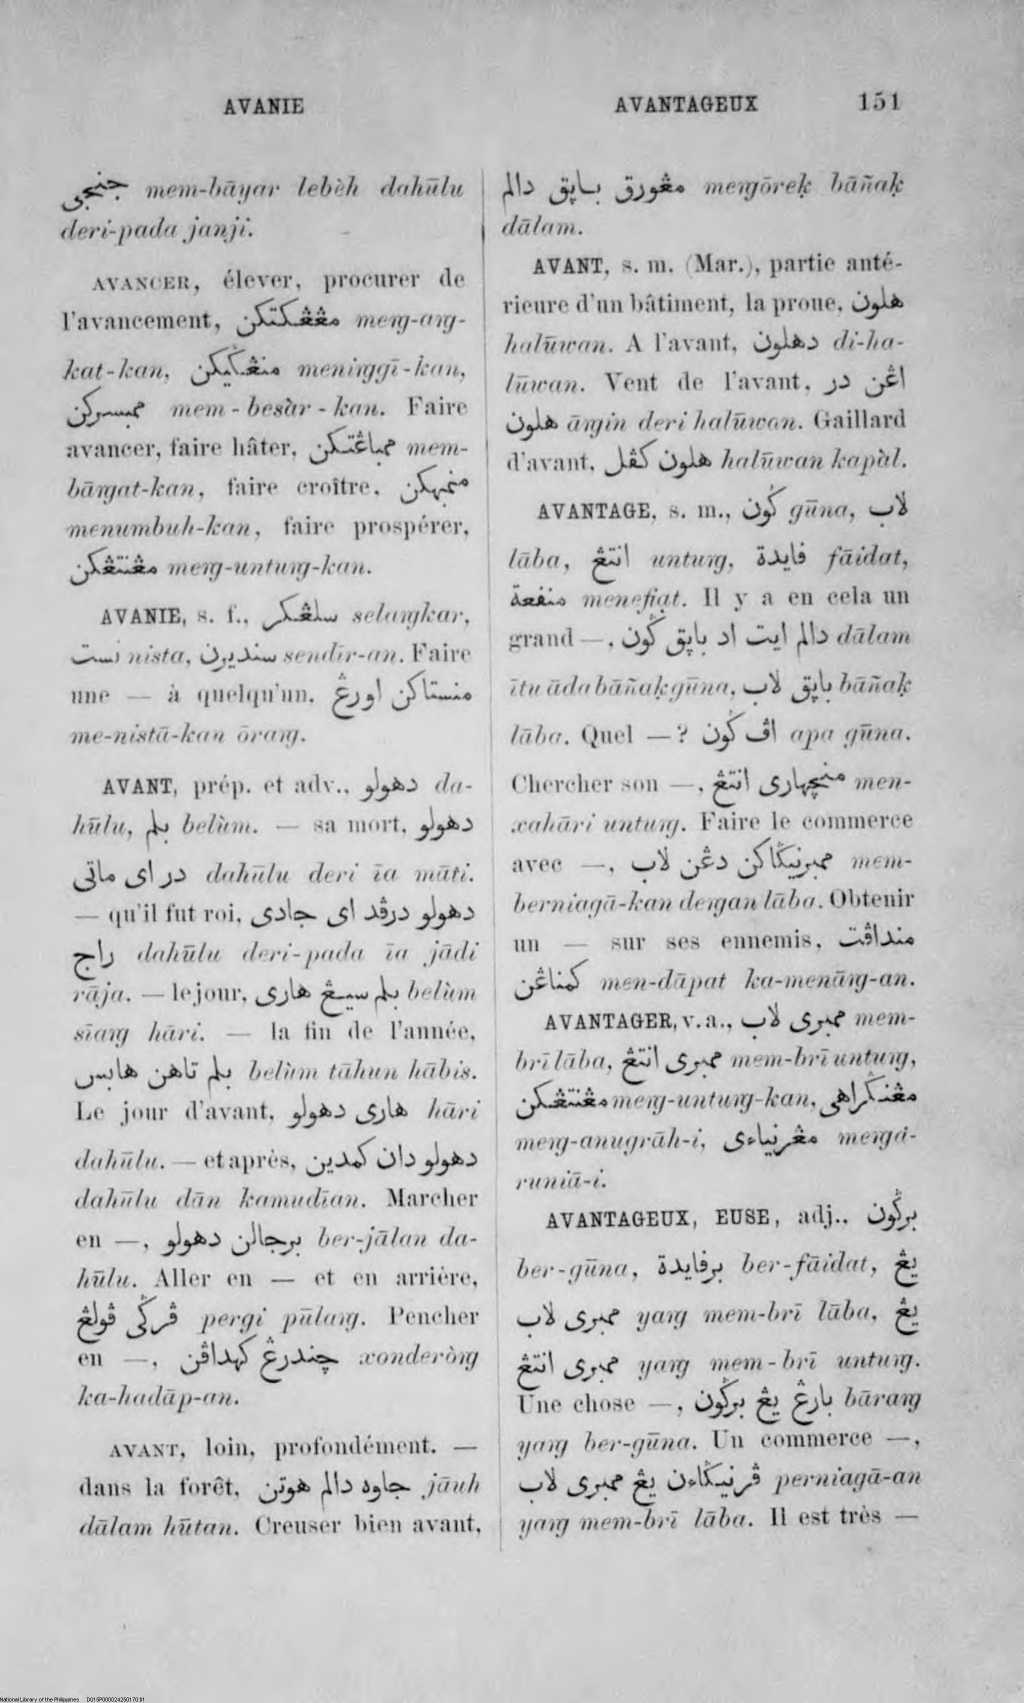 AVANIE
AVANTAGEUX 151
جنجي mem-bāyar lebèh dahūlu
deri-pada janji.
AVANCER, élever, procurer de
l'avancement, مڠڠكتكن meng-ang-
kat-kan, منڠݢيكن meninggī-kan,
ممبسركن mem-besàr-kan. Faire
avancer, faire hâter, ممباڠتكن mem-
bāngat-kan, faire croître, منمبهكن
menumbuh-kan, faire prospérer,
مڠنتڠكن meng-untung-kan.
AVANIE, s. f., سلڠكر selangkar,
نست nista, سنديرن sendīr-an. Faire
une — à quelqu'un, منستاكن اورڠ
me-nistā-kan ōrang.
AVANT, prép. et adv., دهولو da-
hūlu, بلم belùm. — sa mort, دهولو
در اي ماتي dahūlu deri īa māti.
— qu'il fut roi, دهولو درڤد اي جادي
راج dahūlu deri-pada īa jādi
rāja. — le jour, بلم سيڠ هاري belùm
sīang hāri. — la fin de l'année,
بلم تاهن هابس belùm tāhun hābis.
Le jour d'avant, هاري دهولو hāri
dahūlu. — et après, دهولو دان كمدين
dahūlu dān kamudīan. Marcher
en —, برجالن دهولو ber-jālan da-
hūlu. Aller en — et en arrière,
ڤرݢي ڤولڠ pergi pūlang. Pencher
en —, چندرڠ كهداڤن xonderòng
ka-hadāp-an.
AVANT, loin, profondément. —
dans la forêt, جاوه دالم هوتن jāuh
dālam hūtan. Creuser bien avant,
مڠورق باڽق دالم mengōreḳ bāñaḳ
dālam.
AVANT, s. m. (Mar.), partie anté-
rieure d'un bâtiment, la proue, هلون
halūwan. A l'avant, دهلون di-ha-
lūwan. Vent de l'avant, اڠن در
هلون āngin deri halūwan. Gaillard
d'avant, هلون كڤل halūwan kapàl.
AVANTAGE, s. m., ݢون gūna, لاب
lāba, انتڠ untung, فايدة fāidat,
منفعة menefiąt. Il y a en cela un
grand —, دالم ايت اد باڽق ݢون dālam
ītu āda bāñaḳ gūna, باڽق لاب bāñaḳ
lāba. Quel — ? اڤ ݢون apa gūna.
Chercher son —, منچهاري انتڠ men-
xahāri untung. Faire le commerce
avec —, ممبرنيݢاكن دڠن لاب mem-
berniagā-kan dengan lāba. Obtenir
un — sur ses ennemis, منداڤت
كمناڠن men-dāpat ka-menāng-an.
AVANTAGER, v. a., ممبري لاب mem-
brī lāba, ممبري انتڠ mem-brī untung,
مڠنتڠكن meng-untung-kan, مڠنݢراهي
meng-anugrāh-i, مڠرنياءي mengà-
runiā-i.
AVANTAGEUX, EUSE, adj., برݢون
ber-gūna, برفايدة ber-fāidat, يڠ
ممبري لاب yang mem-brī lāba, يڠ
ممبري انتڠ yang mem-brī untung.
Une chose —, بارڠ يڠ برݢون bārang
yang ber-gūna. Un commerce —,
ڤرنيݢاءن يڠ ممبري لاب perniagā-an
yang mem-brī lāba. Il est très —
National Library of the Philippines